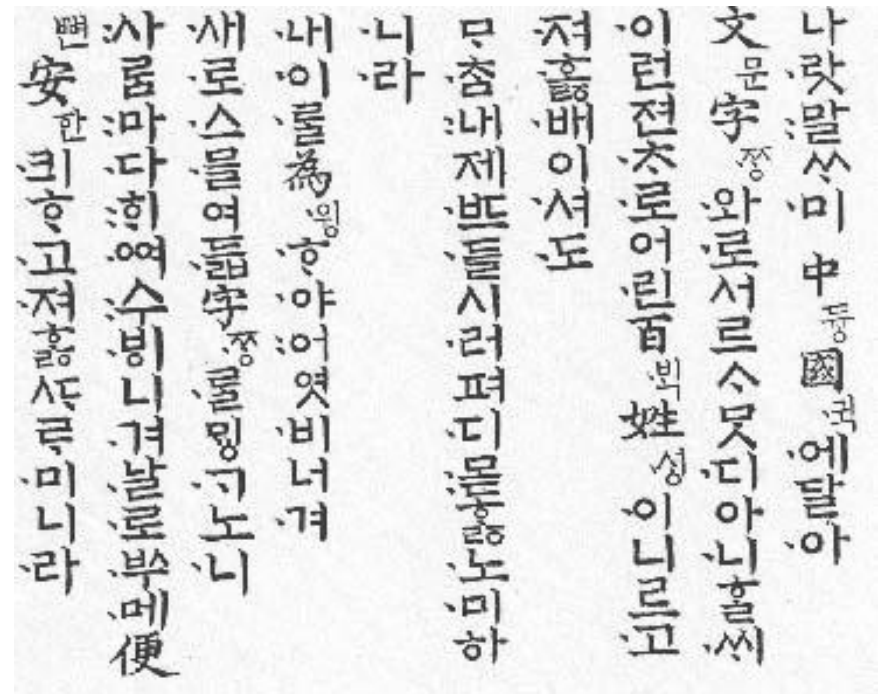 나·랏:말ᄊᆞ·미中듕國·귁·에달·아
文문字·ᄍᆞᆼ·와·로서르ᄉᆞᄆᆞᆺ디아·니ᄒᆞᆯ·ᄊᆡ
·이런젼·ᄎᆞ·로어·린百·ᄇᆡᆨ姓·셩·이니르·고
·져·호ᇙ·배이·셔·도
ᄆᆞ·ᄎᆞᆷ:내제·ᄠᅳ·들시·러펴·디:몯ᄒᆞᇙ·노·미하
·니·라
·내·이·ᄅᆞᆯ為·윙·ᄒᆞ·야:어엿·비너·겨
·새·로·스·믈여·듧字·ᄍᆞᆼ·ᄅᆞᆯᄆᆡᇰ·ᄀᆞ노·니
:사ᄅᆞᆷ:마·다:ᄒᆡ·ᅇᅧ:수·ᄫᅵ니·겨·날·로·ᄡᅮ·메便
뼌安한·킈ᄒᆞ·고·져ᄒᆞᇙᄯᆞᄅᆞ·미니·라